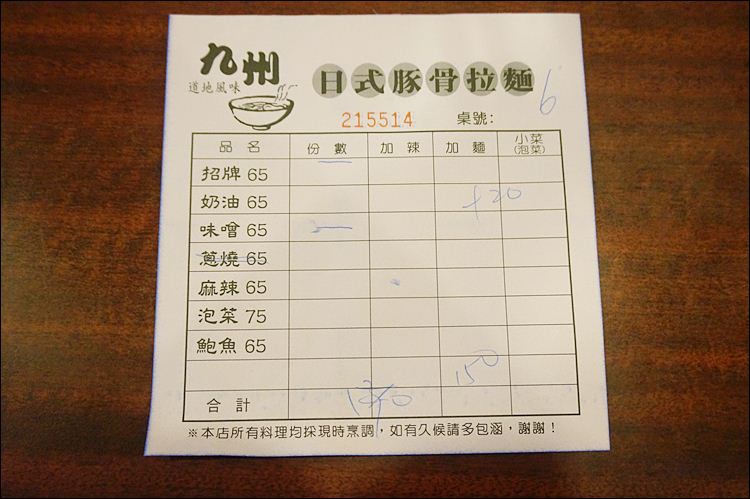 九州
道地風味
日式豚骨拉麵
215514 桌號: 6
品名 份數 加辣 加麵 小菜(泡菜)
招牌 65 一
奶油 65 +20
味噌 65 一
蔥燒 65
麻辣 65
泡菜 75
鮑魚 65
150
合計
※本店所有料理均採現時烹調，如有久候請多包涵，謝謝！